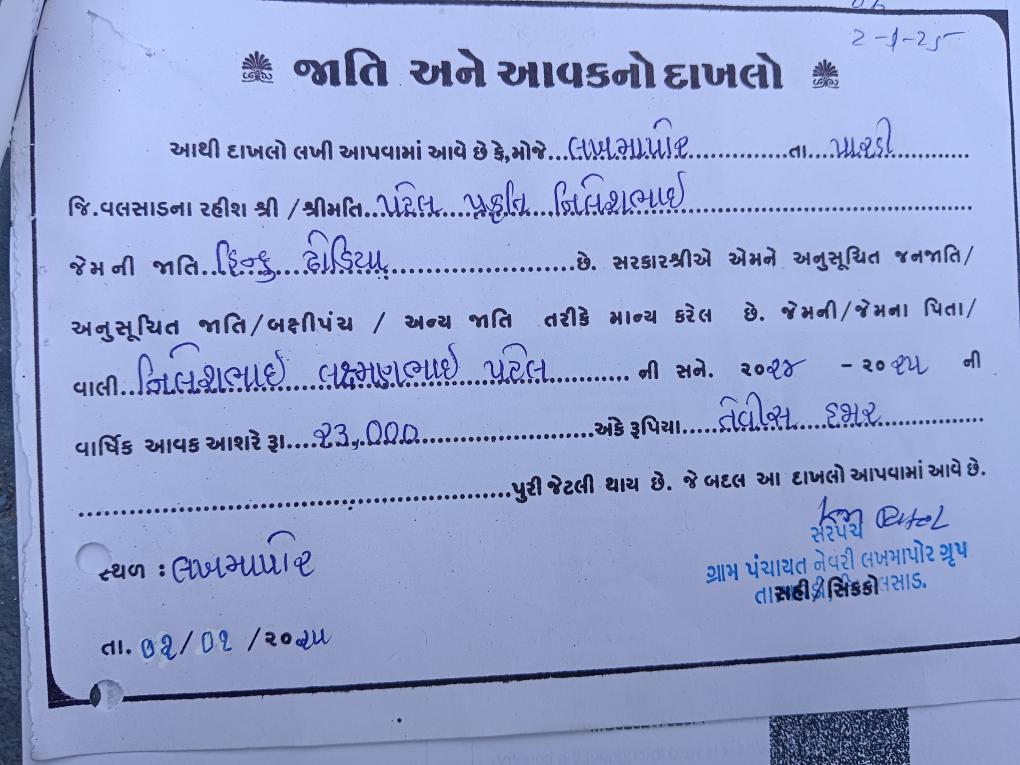 2-1-25
જાતિ અને આવકનો દાખલો
આથી દાખલો લખી આપવામાં આવે છે કે,મોજે...લખમાપોર..............તા...પારડી..........
જિ.વલસાડના રહીશ શ્રી /શ્રીમતિ..પટેલ પ્રકૃતિ નિલેશભાઈ..............................
જેમની જાતિ..હિન્દુ ઢોડિયા.........................છે. સરકારશ્રીએ એમને અનુસૂચિત જનજાતિ/
અનુસૂચિત જાતિ/બક્ષીપંચ / અન્ય જાતિ તરીકે માન્ય કરેલ છે. જેમની/જેમના પિતા/
વાલી..નિલેશભાઈ લક્ષ્મણભાઈ પટેલ......... ની સને. ૨૦૨૪ - ૨૦૨૫ ની
વાર્ષિક આવક આશરે રૂા....૨૩,૦૦૦......................અંકે રૂપિયા.....તેવીસ હજાર..........
......................................................પુરી જેટલી થાય છે. જે બદલ આ દાખલો આપવામાં આવે છે.
સરપંચ
સ્થળ : લખમાપોર
ગ્રામ પંચાયત નેવરી લખમાપોર ગ્રુપ
સહી/સિકકો
તા. ૦૨/૦૧/૨૦૨૫